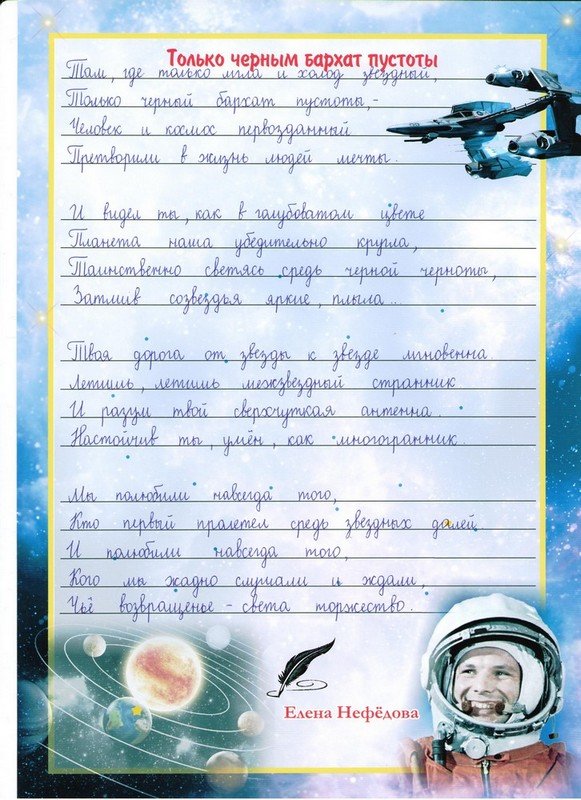 Только черным бархат пустоты
Там, где только мгла и холод звездный,
Только черный бархат пустоты,-
Человек и космос первозданный
Претворили в жизнь людей мечты.
И видел ты, как в голубоватом цвете
Планета наша убедительно кругла,
Таинственно светясь средь черной черноты,
Затмив созвездья яркие, плыла...
Твая дорога от звезды к звезде мгновенна.
Летишь, летишь межзвездный странник
И разум твой сверхчуткая антенна.
Настойчив ты, умён, как многогранник.
Мы полюбили навсегда того,
Кто первый пролетел средь звездных далей.
И полюбили навсегда того,
Кого мы жадно слушали и ждали,
Чьё возвращенье - света торжество.
Елена Нефёдова